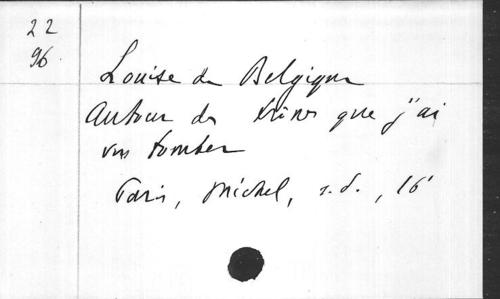 22
96
Louise de Belgique
Autour des trônes que j'ai
vus tomber
Paris, Michel, s.d., 16°